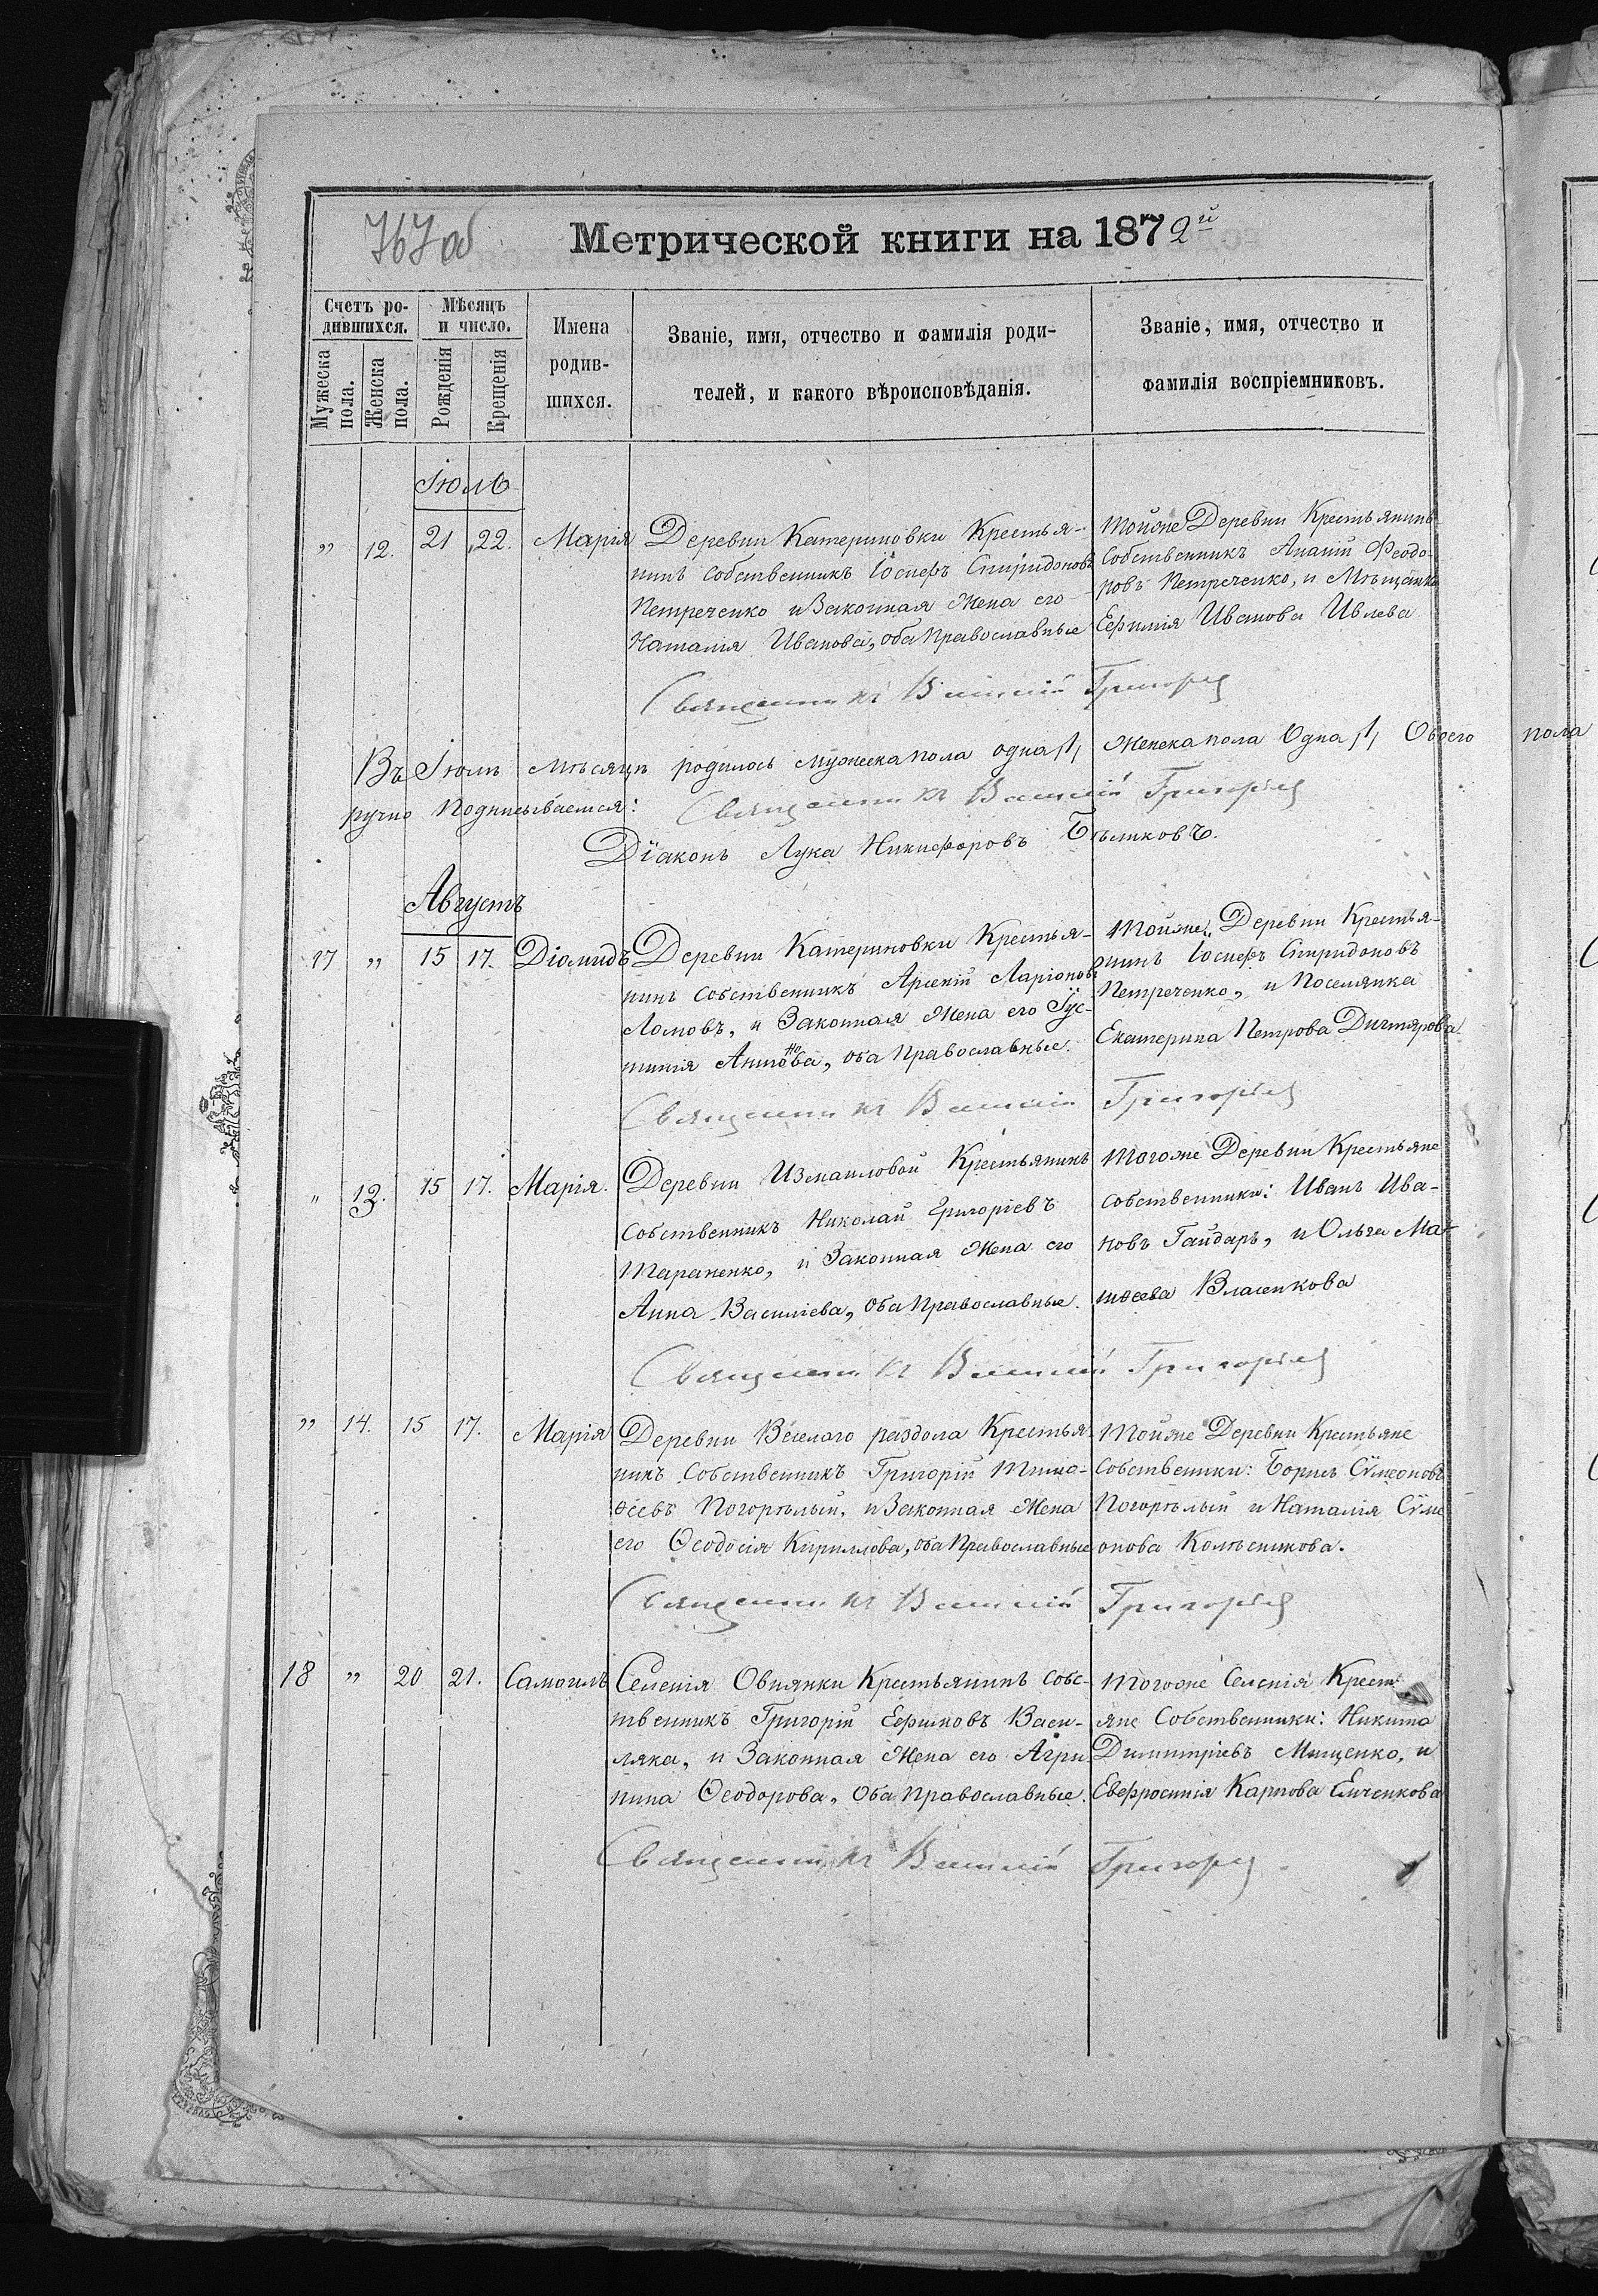 767 об
Метрической книги на 1872й
Счетъ ро-
дившихся.
Мѣсяцъ
и число.
Мужеска
пола.
Женска
пола.
Рожденія
Крещенія
Имена
родив-
шихся.
Званіе, имя, отчество и фамилія роди-
телей, и какого вѣроисповѣданія.
Званіе, имя, отчество и
фамилія воспріемниковъ.
Іюль
„ 12. 21 22. Марія
Деревни Катериновки Крестья-
нинъ собственникъ Іосифъ Спиридоновъ
Петреченко и Законная Жена его
Наталія Иванова, оба православные
Тойже Деревни Крестьянинъ
собственникъ Ананій Феодо-
ровъ Петреченко, и Мѣщанка
Ефимія Иванова Ивлева
Священникъ Василій Григорьев
Въ Іюлѣ мѣсяцѣ родилось мужеска пола одна /1/ Женска пола Одна /1/ Обоего пола
ручно Подписываемся:
Священникъ Василій Григорьев
Діаконъ Лука Никифоровъ Бѣликовъ.
Августъ
17 „ 15 17. Діомидъ
Деревни Катериновки Крестья-
нинъ Собственникъ Арсеній Ларіоновъ
Ломовъ, и Законная Жена его Іус-
тинія Антонова, оба Православные.
Тойже Деревни Крестья-
нинъ Іосифъ Спиридоновъ
Петреченко, и Поселянка
Екатерина Петрова Дигтярова
Священникъ Василій Григорьев
„ 13. 15 17. Марія.
Деревни Измаиловой Крестьянинъ
Собственникъ Николай Григоріевъ
Тараненко, и Законная Жена его
Анна Василіева, Оба Православные.
Тогоже Деревни Крестьяне
собственники: Иванъ Ива-
новъ Гайдаръ, и Ольга Мат-
ѳеева Власенкова
Священникъ Василій Григорьев
„ 14. 15 17. Марія
Деревни Веселаго раздола Крестья-
нинъ Собственникъ Григорій Тимо-
ѳеевъ Погорѣлый, и Законная Жена
его Ѳеодосія Кириллова, оба Православные
Тойже Деревни Крестьяне
Собственники: Борисъ Сѵмеоновъ
Погорѣлый и Наталія Сѵме
онова Колѣсникова.
Священникъ Василій Григорьев
18 „ 20 21. Самоилъ
Селенія Овнянки Крестьянинъ собс-
твенникъ Григорій Ефимовъ Васи-
ляка, и Законная Жена его Агри
пина Ѳеодорова, Оба православные.
Тогоже Селенія Крест
яне Собственники: Никита
Димитріевъ Мищенко, и
Евфросинія Карпова Емченкова
Священникъ Василій Григорьев